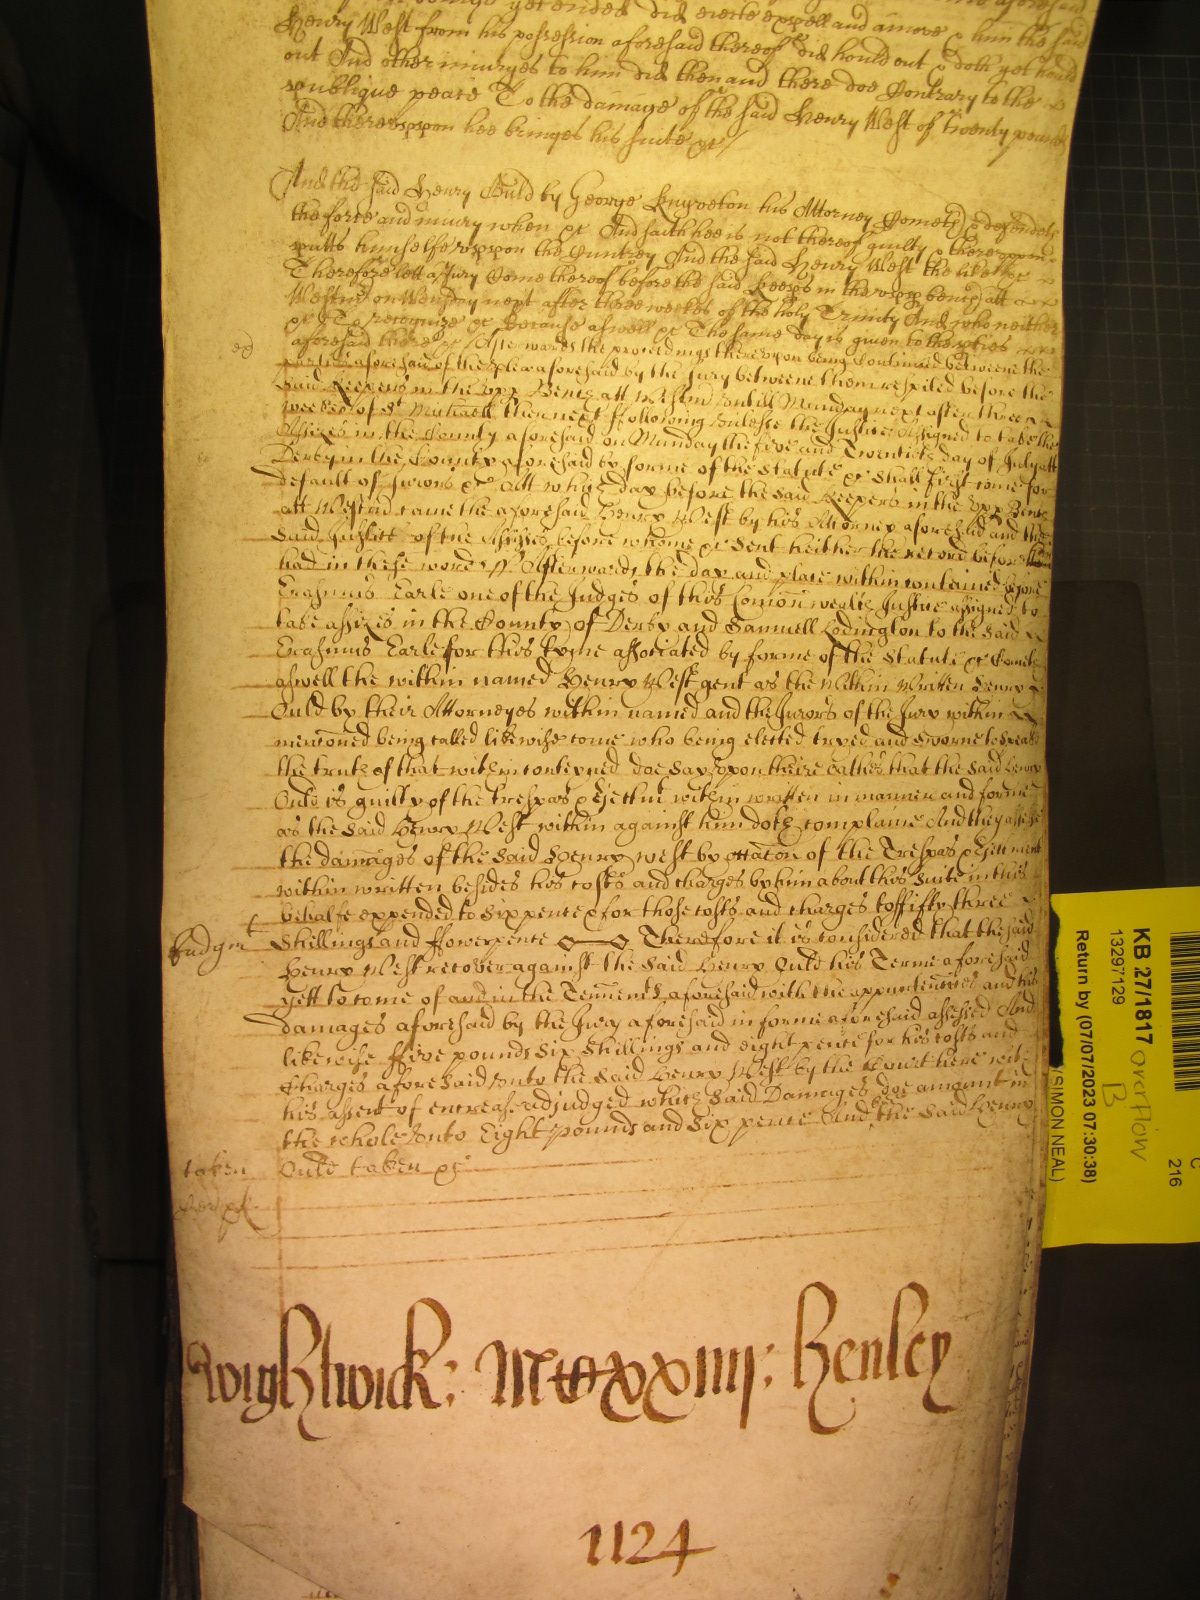 yet ended did eiecte expell and amove & him the said
Henry West from his possession aforesaid thereof did hould out & doth yet hould
out And other iniuryes to him did then and there doe Contrary to the
publique peace To the damage of the said Henry West of Twenty pounds
And thereuppon hee bringes his suite &c
And the said Henry Ould by George Knyveton his Attorney Cometh & defendeth
the force and iniury when &c And saith hee is not thereof guilty & thereuppon
putts himselfe uppon the Cuntrey And the said Henry West the like &c
Therefore lett a Jury Come thereof before the said Keeps in the upp bench att
Westm on Wensday next after three weekes of the holy Trinity And who neither
&c To recognize &c Because aswell &c The same day is given to the pties
aforesaid there &c Afterwards the proceedings thereupon being Continued betweene the
parties aforesaid of the plea aforesaid by the Jury betweene them respited before the
said Keepers in the upp Bench att Westm untill Munday next after three
weekes of St Michaell then next following Unlesse the Justices Assigned to take the
Assizes in the County aforesaid on Munday the five and Twentieth day of July att
Derby in the County aforesaid by forme of the Statute &c shall first come for
default of Jurors &c Att which day before the said Keepers in the upp Bench
att Westm came the aforesaid Henry West by his Attorney aforesaid and the
said Justices of the Assizes before whome &c sent hither the record before them
had in these words ss Afterwards the day and place within conteined before
Erasmus Earle one of the Judges of this Comon wealth Justice assigned to
take assizes in the County of Derby and Samuell Lodington to the said
Erasmus Earle for this tyme associated by forme of the Statute &c Cometh
aswell the within named Henry West gent as the within written Henry
Ould by their Attorneyes within named and the Jurors of the Jury within
menconed being called likewise come who being elected tryed and sworne to speake
the truth of that within conteyned doe say upon theire oathes that the said Henry
Ould is guilty of the trespas & Ejectmt within written in manner and forme
as the said Henry West within against him doth complaine And they assesse
the damages of the said Henry West by occacon of the Trespas & Ejectment
within written besides his costs and charges by him about his suite in this
behalfe expended to six pence & for those costs and charges to ffifty three
Judgmt shillings and ffower pence Therefore it is considered that the said
Henry West recover against the said Henry Ould his Terme aforesaid
yett to come of and in the Tenements aforesaid with the appurtennces and his
damages aforesaid by the Jury aforesaid in forme aforesaid assessed And
likewise ffive pounds six shillings and eight pence for his costs and
Charges aforesaid unto the said Henry West by the Court here with
his assent of encrease adjudged which said Damages doe amount in
the whole unto Eight pounds and six pence And the said Henry bee
taken Ould taken &c
Wightwick: MCxxiiij: Henley
1124
KB 27/1817 overflow
B
13297129
Return by (07/07/2023 07:30:38)
(SIMON NEAL)
C
216